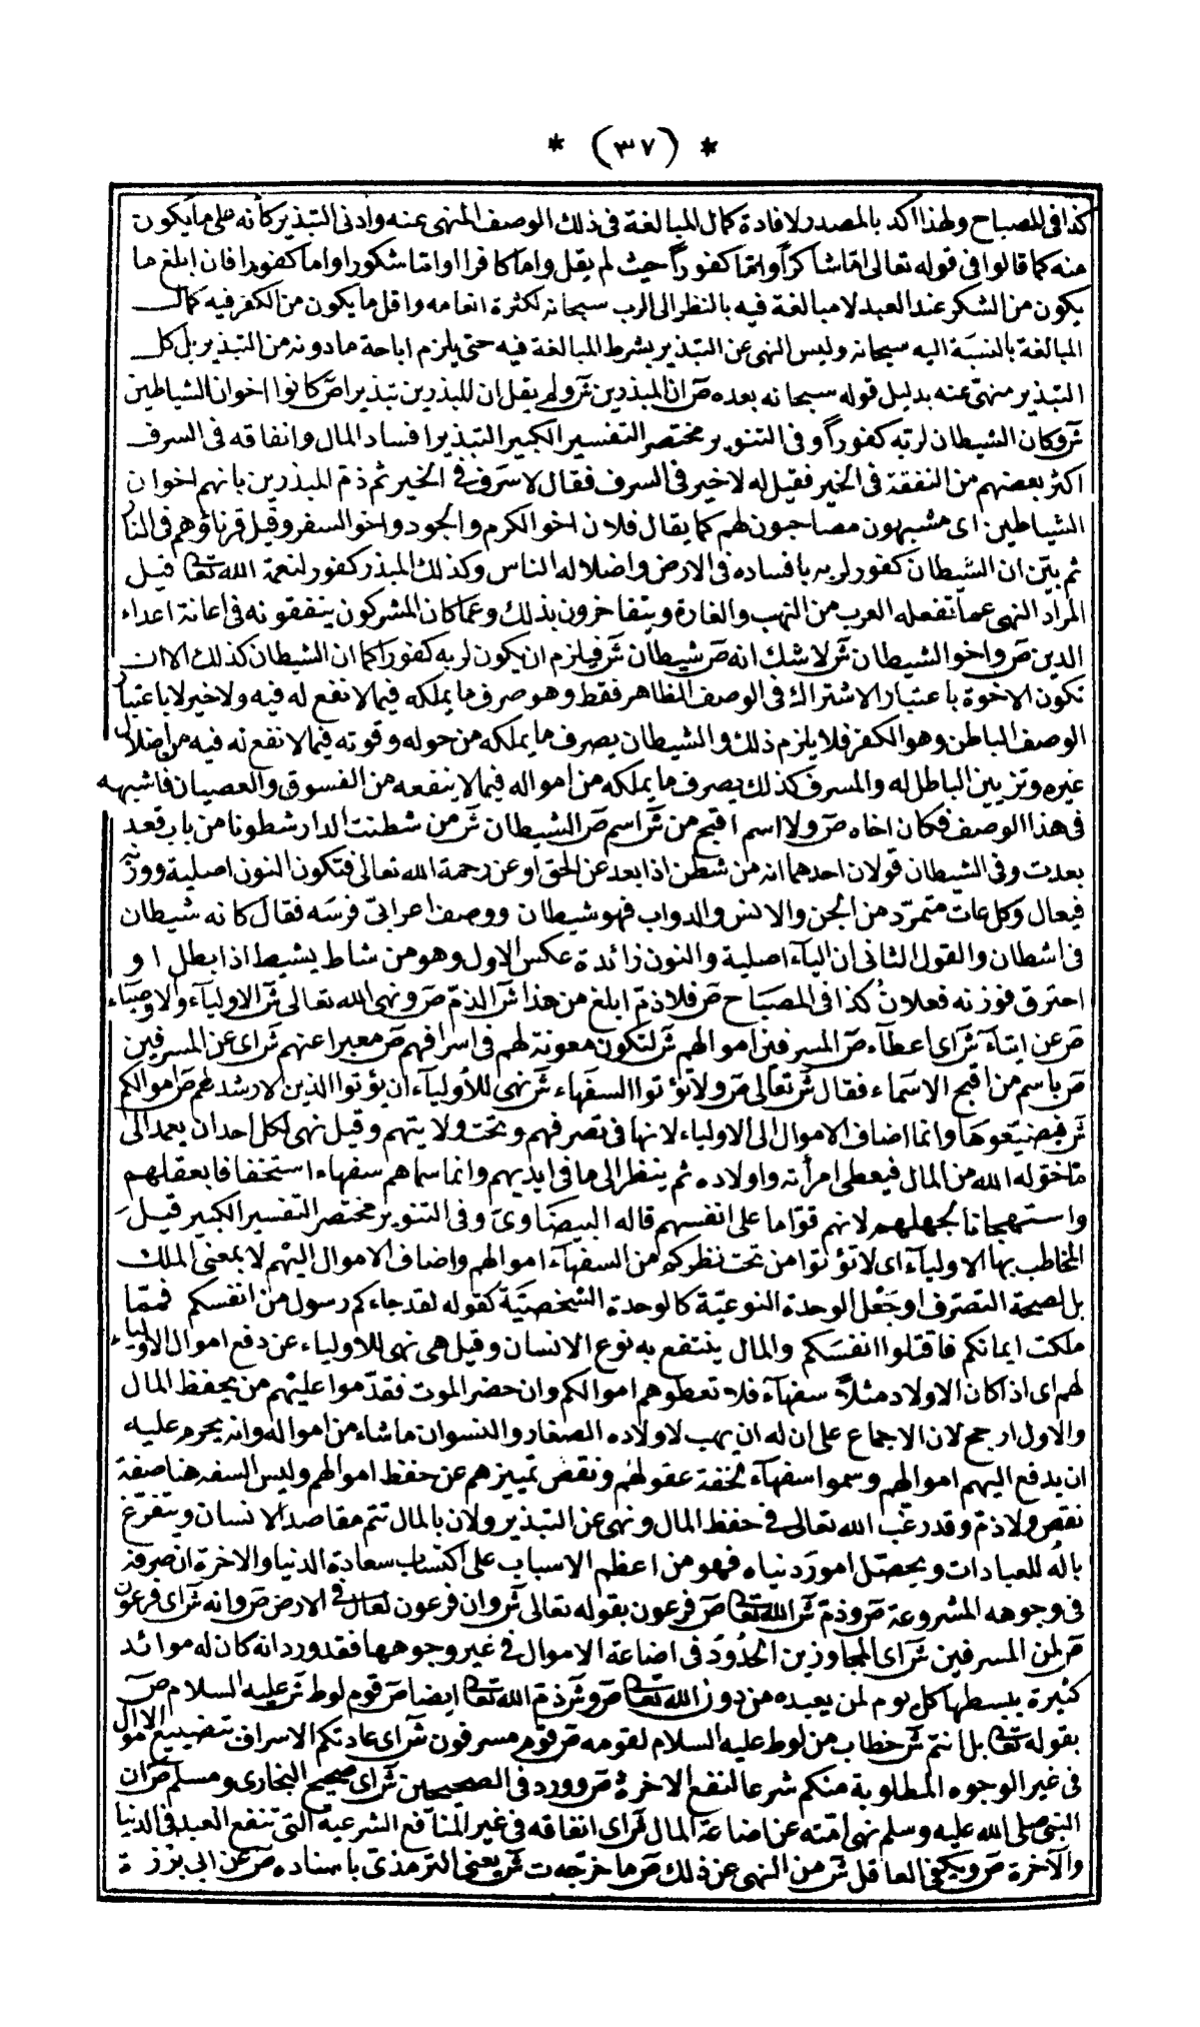 * (٣٧) *
كذا في المصباح ولهذا اكد بالمصدر لافادة كمال المبالغة في ذلك الوصف المنهى عنه وادنى التبذير كأنه على ما يكون
منه كما قالوا في قوله تعالى امّا شاكراً وامّا كفوراً حيث لم يقل واما كافرا او امّا شكورا واما كفورا فان ابلغ ما
يكون من الشكر عند العبد لا مبالغة فيه بالنظر الى الرب سبحانه لكثرة انعامه واقل ما يكون من الكفر فيه كمال
المبالغة بالنسبة اليه سبحانه وليس النهى عن التبذير بشرط المبالغة فيه حتى يلزم اباحة ما دونه من التبذير بل كل
التبذير منهىّ عنه بدليل قوله سبحانه بعده ص ان المبذرين ش ولم يقل ان المبذرين تبذيرا ص كانوا اخوان الشياطين
ش وكان الشيطان لربّه كفوراً وفى التنوير مختصر التفسير الكبير التبذير افساد المال وانفاقه فى السرف
اكثر بعضهم من النفقة فى الخير فقيل له لا خير فى السرف فقال لا سرف فى الخير ثم ذمّ المبذرين بانهم اخوان
الشياطين اى مشبهون مصاحبون لهم كما يقال فلان اخو الكرم والجود واخو السفر وقيل قرناؤهم فى النار
ثم بيّن ان الشيطان كفور لربه بافساده فى الارض واضلاله الناس وكذلك المبذر كفور لنعمة الله تعالى قيل
المراد النهى عما تفعله العرب من النهب والغارة ويتفاخرون بذلك وعما كان المشركون ينفقونه فى اعانة اعداء
الدين ص واخو الشيطان ش لا شك انه ص شيطان ش فيلزم ان يكون لربه كفورا كما ان الشيطان كذلك الا ان
تكون الاخوة باعتبار الاشتراك فى الوصف الظاهر فقط وهو صرف ما يملكه فيما لا نفع له فيه ولا خير لا باعتبار
الوصف الباطن وهو الكفر فلا يلزم ذلك والشيطان يصرف ما يملكه من حوله وقوته فيما لا نفع له فيه من اضلال
غيره وتزيين الباطل له والمسرف كذلك يصرف ما يملكه من امواله فيما لا ينفعه من الفسوق والعصيان فاشبهه
فى هذا الوصف فكان اخاه ص ولا اسم اقبح من ش اسم ص الشيطان ش من شطنت الدار شطونا من باب قعد
بعدت وفى الشيطان قولان احدهما انه من شطن اذا بعد عن الحق او عن رحمة الله تعالى فتكون النون اصلية ووزنه
فيعال وكل عات متمرّد من الجن والانس والدواب فهو شيطان ووصف اعرابىّ فرسه فقال كانه شيطان
فى اشطان والقول الثانى ان الياء اصلية والنون زائدة عكس الاول وهو من شاط يشيط اذا بطل او
احترق فوزنه فعلان كذا فى المصباح ص فلا ذمّ ابلغ من هذا ش الذمّ ص ونهى الله تعالى ش الاولياء والاوصياء
ص عن ايتاء ش اى اعطاء ص المسرفين اموالهم ش لتكون معونة لهم فى اسرافهم ص معبرا عنهم ش اى عن المسرفين
ص باسم من اقبح الاسماء فقال ش تعالى ص ولا تؤتوا السفهاء ش نهى للاولياء ان يؤتوا الذين لا رشد لهم ص اموالكم
ش فيضيّعوها وانما اضاف الاموال الى الاولياء لانها فى تصرفهم وتحت ولايتهم وقيل نهى لكل احد ان يعمد الى
ما خوّله الله من المال فيعطى امرأته واولاده ثم ينظر الى ما فى ايديهم وانما سماهم سفهاء استخفافا بعقلهم
واستهجانا لجهلهم لانهم قوّاما على انفسهم قاله البيضاوىّ وفى التنوير مختصر التفسير الكبير قيل
المخاطب بها الاولياء اى لا تؤتوا من تحت نظركم من السفهاء اموالهم واضاف الاموال اليهم لا بمعنى الملك
بل لصحة التصرّف او جَعْل الوحدة النوعيّة كالوحدة الشخصيّة كقوله لقد جاءكم رسول من انفسكم فممّا
ملكت ايمانكم فاقتلوا انفسكم والمال ينتفع به نوع الانسان وقيل هى نهى للاولياء عن دفع اموال الاولياء
لهم اى اذا كان الاولاد مثلاً سفهاء فلا تعطوهم اموالكم وان حضر الموت فقدّموا عليهم من يحفظ المال
والاول ارجح لان الاجماع على ان له ان يهب لاولاده الصغار والنسوان ما شاء من امواله وانه يحرم عليه
ان يدفع اليهم اموالهم وسموا سفهاء لخفة عقولهم ونقص تمييزهم عن حفظ اموالهم وليس السفه هنا صفة
نقص ولا ذمّ وقد رغّب الله تعالى فى حفظ المال ونهى عن التبذير ولان بالمال تتم مقاصد الانسان ويتفرّغ
باله للعبادات ويحصّل امور دنياه فهو من اعظم الاسباب على اكتساب سعادة الدنيا والاخرة ان صرفه
فى وجوهه المشروعة ص وذمّ ش الله تعالى ص فرعون بقوله تعالى ش وان فرعون لعال فى الارض ص وانه ش اى فرعون
ص لمن المسرفين ش اى المجاوزين الحدود فى اضاعة الاموال فى غير وجوهها فقد ورد انه كان له موائد
كثيرة يبسطها كل يوم لمن يعبده من دون الله تعالى ص و ش ذمّ الله تعالى ايضا ص قوم لوط ش عليه السلام ص
بقوله تعالى بل انتم ش خطاب من لوط عليه السلام لقومه ص قوم مسرفون ش اى عادتكم الاسراف تضييع الاموال
فى غير الوجوه المطلوبة منكم شرعا لنفع الاخرة ص وورد فى الصحيحين ش اى صحيح البخارى ومسلم ص ان
النبى صلى الله عليه وسلم نهى امّته عن اضاعة المال ش اى انفاقه فى غير المنافع الشرعية التى تنفع العبد فى الدنيا
والآخرة ص ويكفى العاقل ش من النهى عن ذلك ص ما خرّجه ت ش يعنى الترمذىّ باسناده ص عن ابى برزة